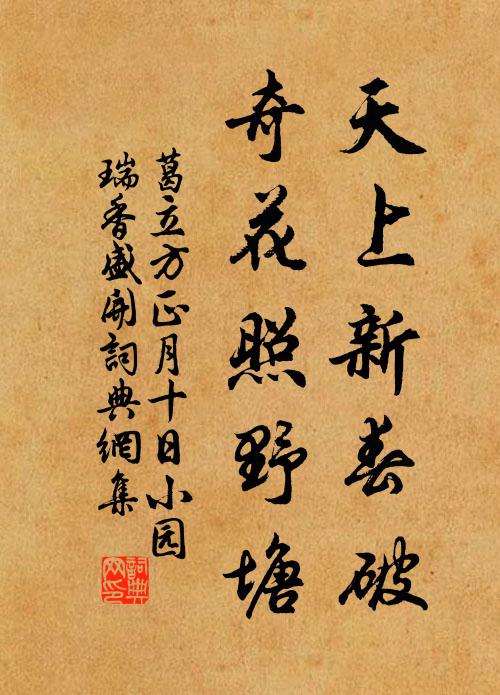 天上新春破
奇花照野塘
葛立方正月十日小园
瑞香盛開詞典網集
詞典
网印